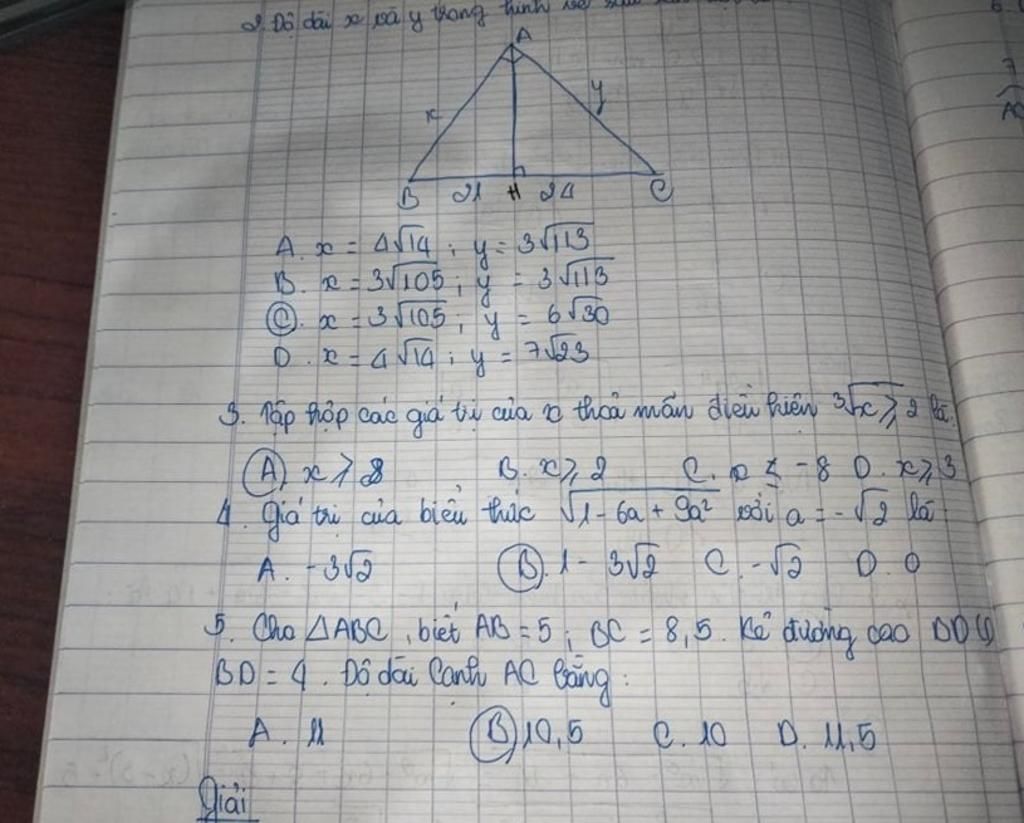 2. Độ dài x và y trong hình vẽ sau
A
x
y
B 21 H 24 C
A. x = 4√14 ; y = 3√113
B. x = 3√105 ; y = 3√113
C. x = 3√105 ; y = 6√30
D. x = 4√14 ; y = 7√23
3. Tập hợp các giá trị của x thoả mãn điều kiện ³√x ⩾ 2 là:
A. x ⩾ 8 B. x ⩾ 2 C. x ≤ -8 D. x ⩾ 3
4. Giá trị của biểu thức √1 - 6a + 9a² với a = -√2 là
A. -3√2 B. 1 - 3√2 C. -√2 D. 0
5. Cho △ABC, biết AB = 5 ; BC = 8,5. Kẻ đường cao
BD = 4. Độ dài cạnh AC bằng:
A. 11 B. 10,5 C. 10 D. 11,5
Giải
7